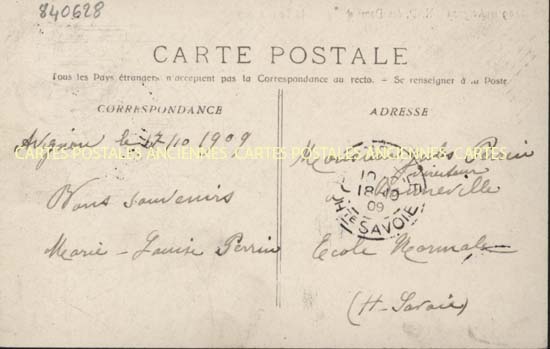 840628
CARTE POSTALE
Tous les Pays étrangers n'acceptent pas la Correspondance au recto. - Se renseigner à la Poste
CORRESPONDANCE
ADRESSE
Avignon le 17/10 1909
CARTES POSTALES ANCIENNES CARTES POSTALES ANCIENNES CARTES POSTALES ANCIENNES
Bons souvenirs
Marie-Louise Perrin
Monsieur Perrin
Directeur
Bonneville
18-10
09
HTE SAVOIE
Ecole Normale
(H-Savoie)